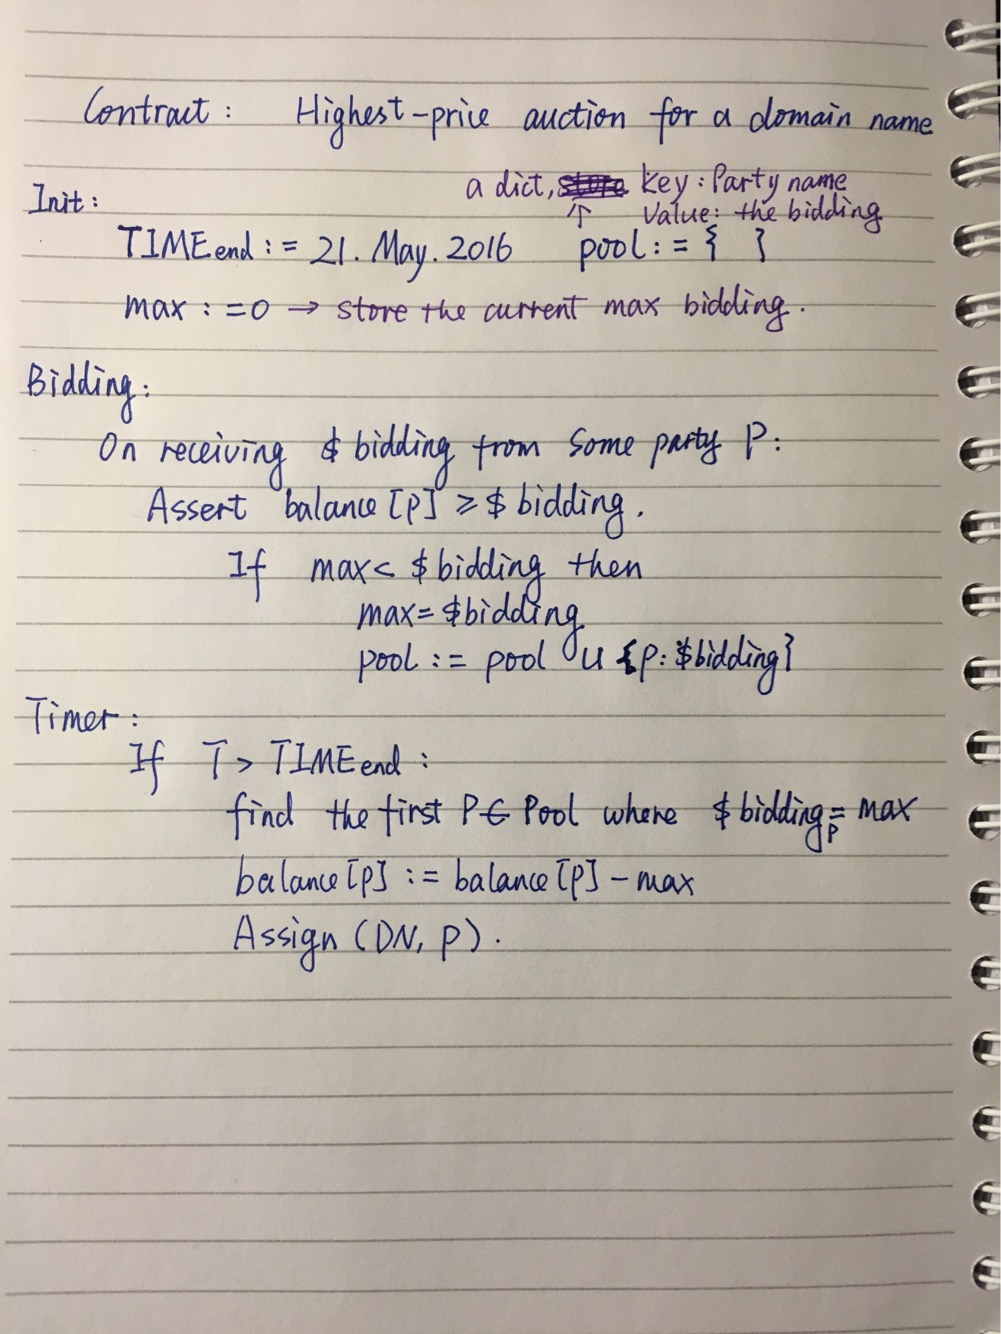 Contract : Highest-price auction for a domain name
a dict, store key : Party name
Init : ↑ Value: the bidding
TIMEend := 21. May. 2016 pool := { }
max := 0 → store the current max bidding.
Bidding:
On receiving $ bidding from some party P:
Assert balance [P] ≥ $ bidding.
If max < $ bidding then
max = $bidding
pool := pool ∪ {P: $bidding}
Timer :
If T > TIMEend :
find the first P ∈ Pool where $ biddingp = max
balance [P] := balance [P] - max
Assign (DN, P).